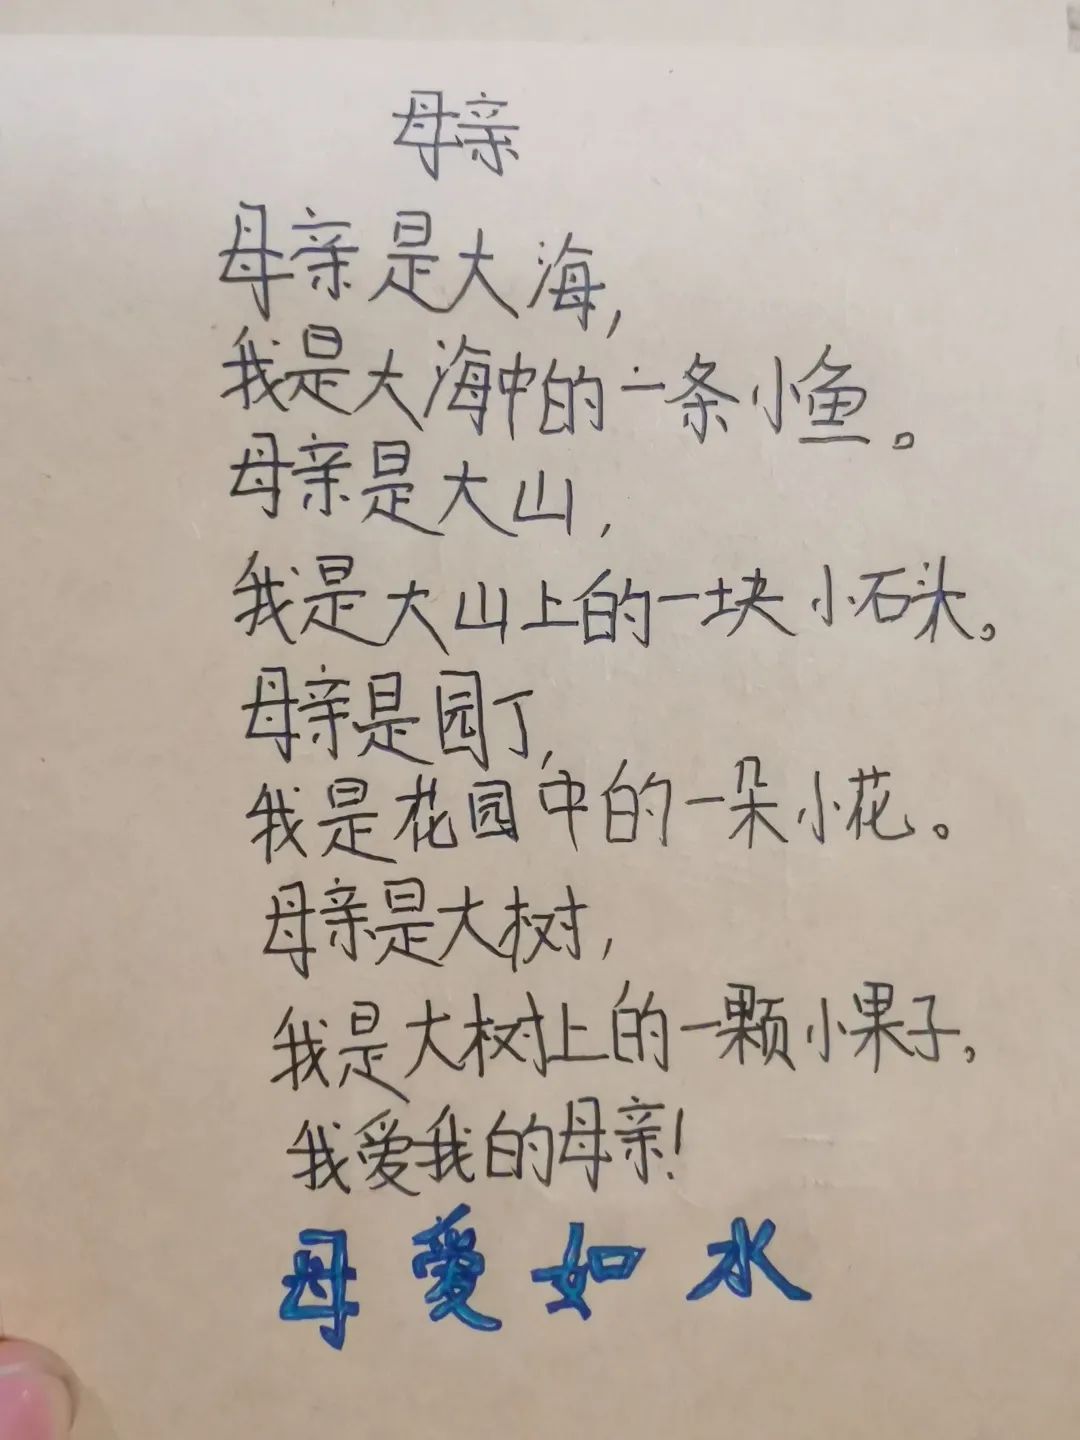 母亲
母亲是大海,
我是大海中的一条小鱼。
母亲是大山,
我是大山上的一块小石头。
母亲是园丁,
我是花园中的一朵小花。
母亲是大树,
我是大树上的一颗小果子,
我爱我的母亲!
母愛如水